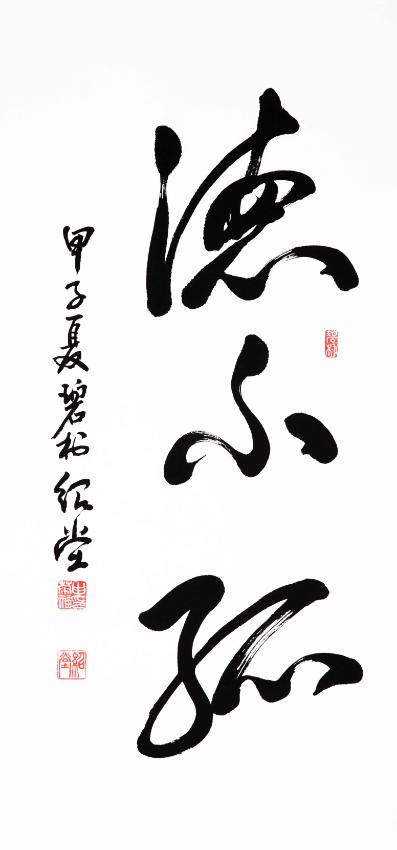 德不孤
甲子夏碧村绍堂